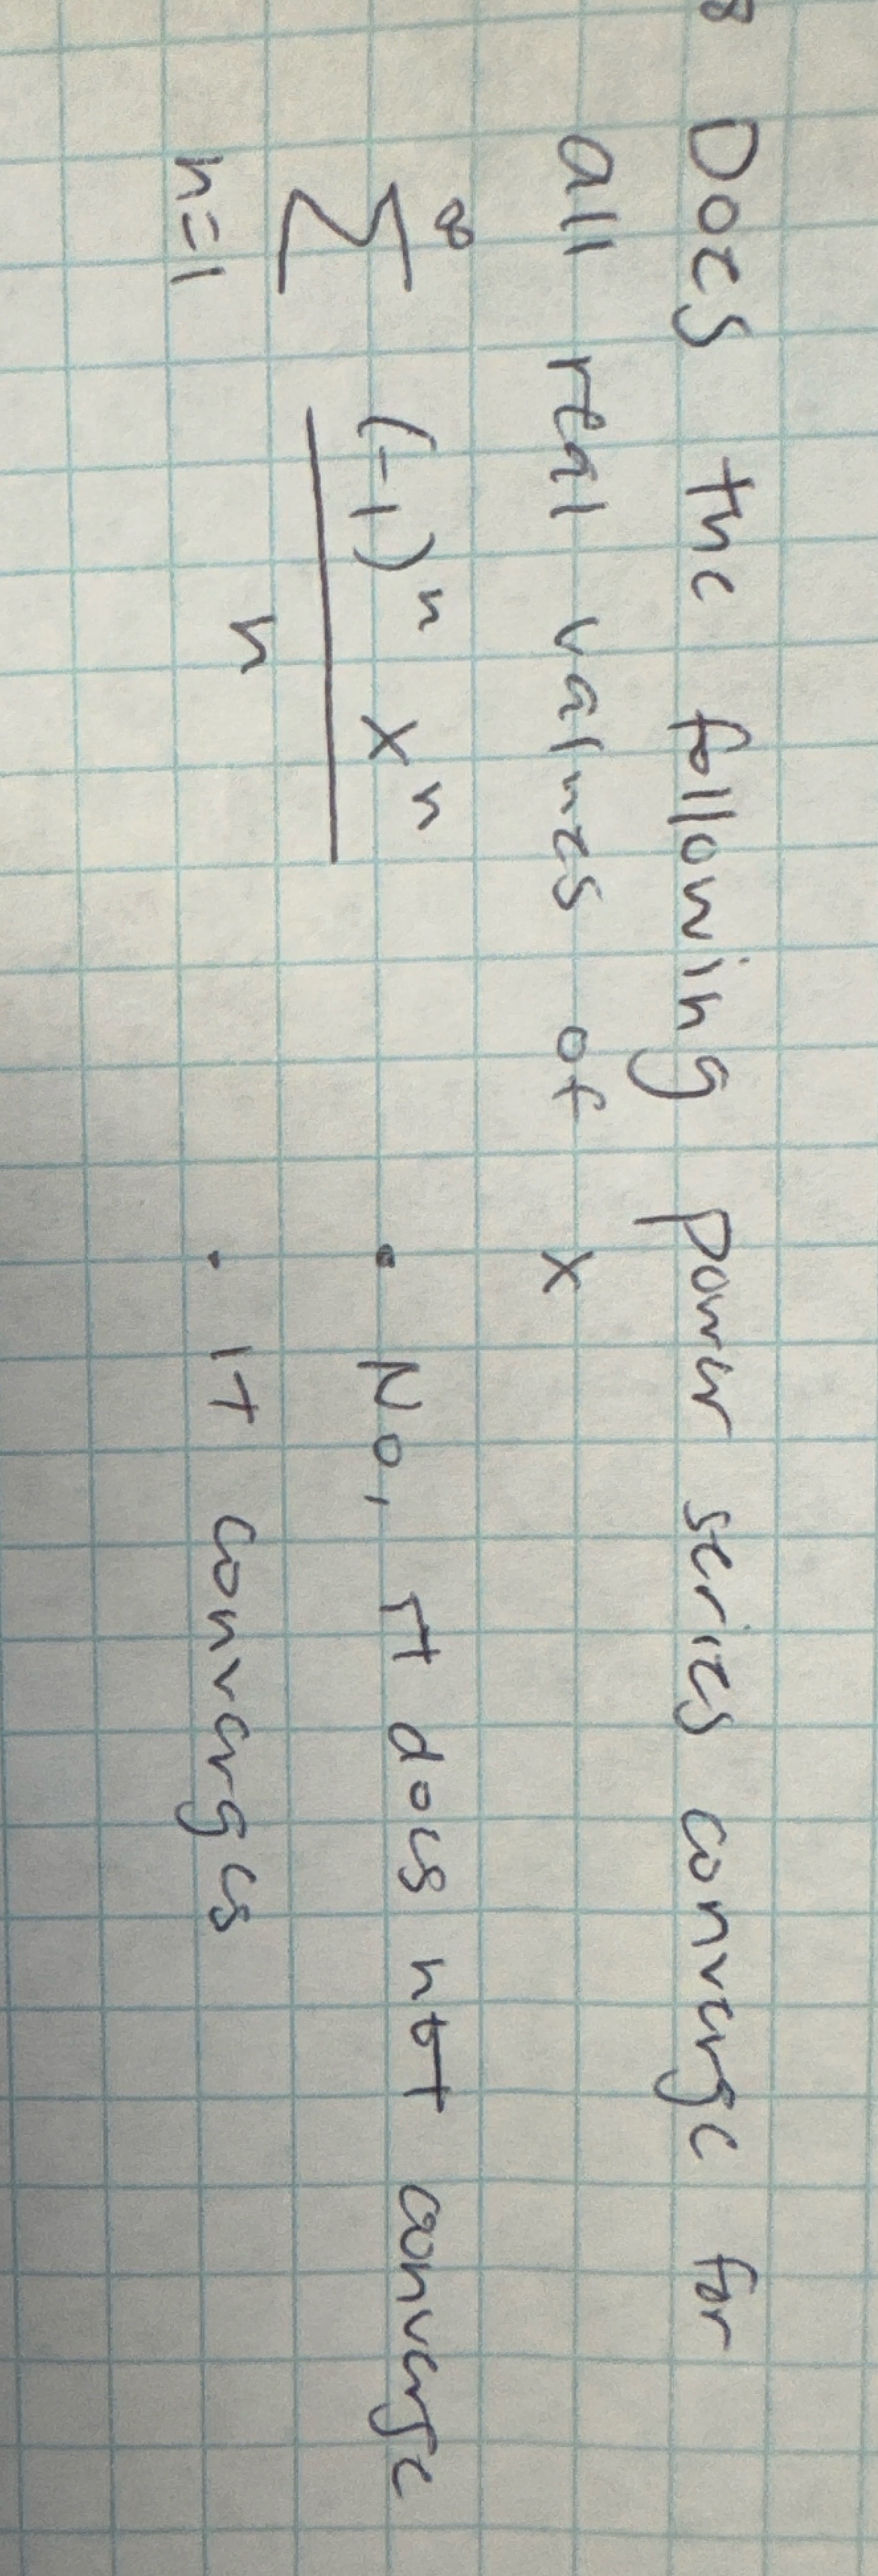 8 Does the following power series converge for
all real values of x
∞
∑ (-1)ⁿ xⁿ
n=1 n
• No, it does not converge
• it converges